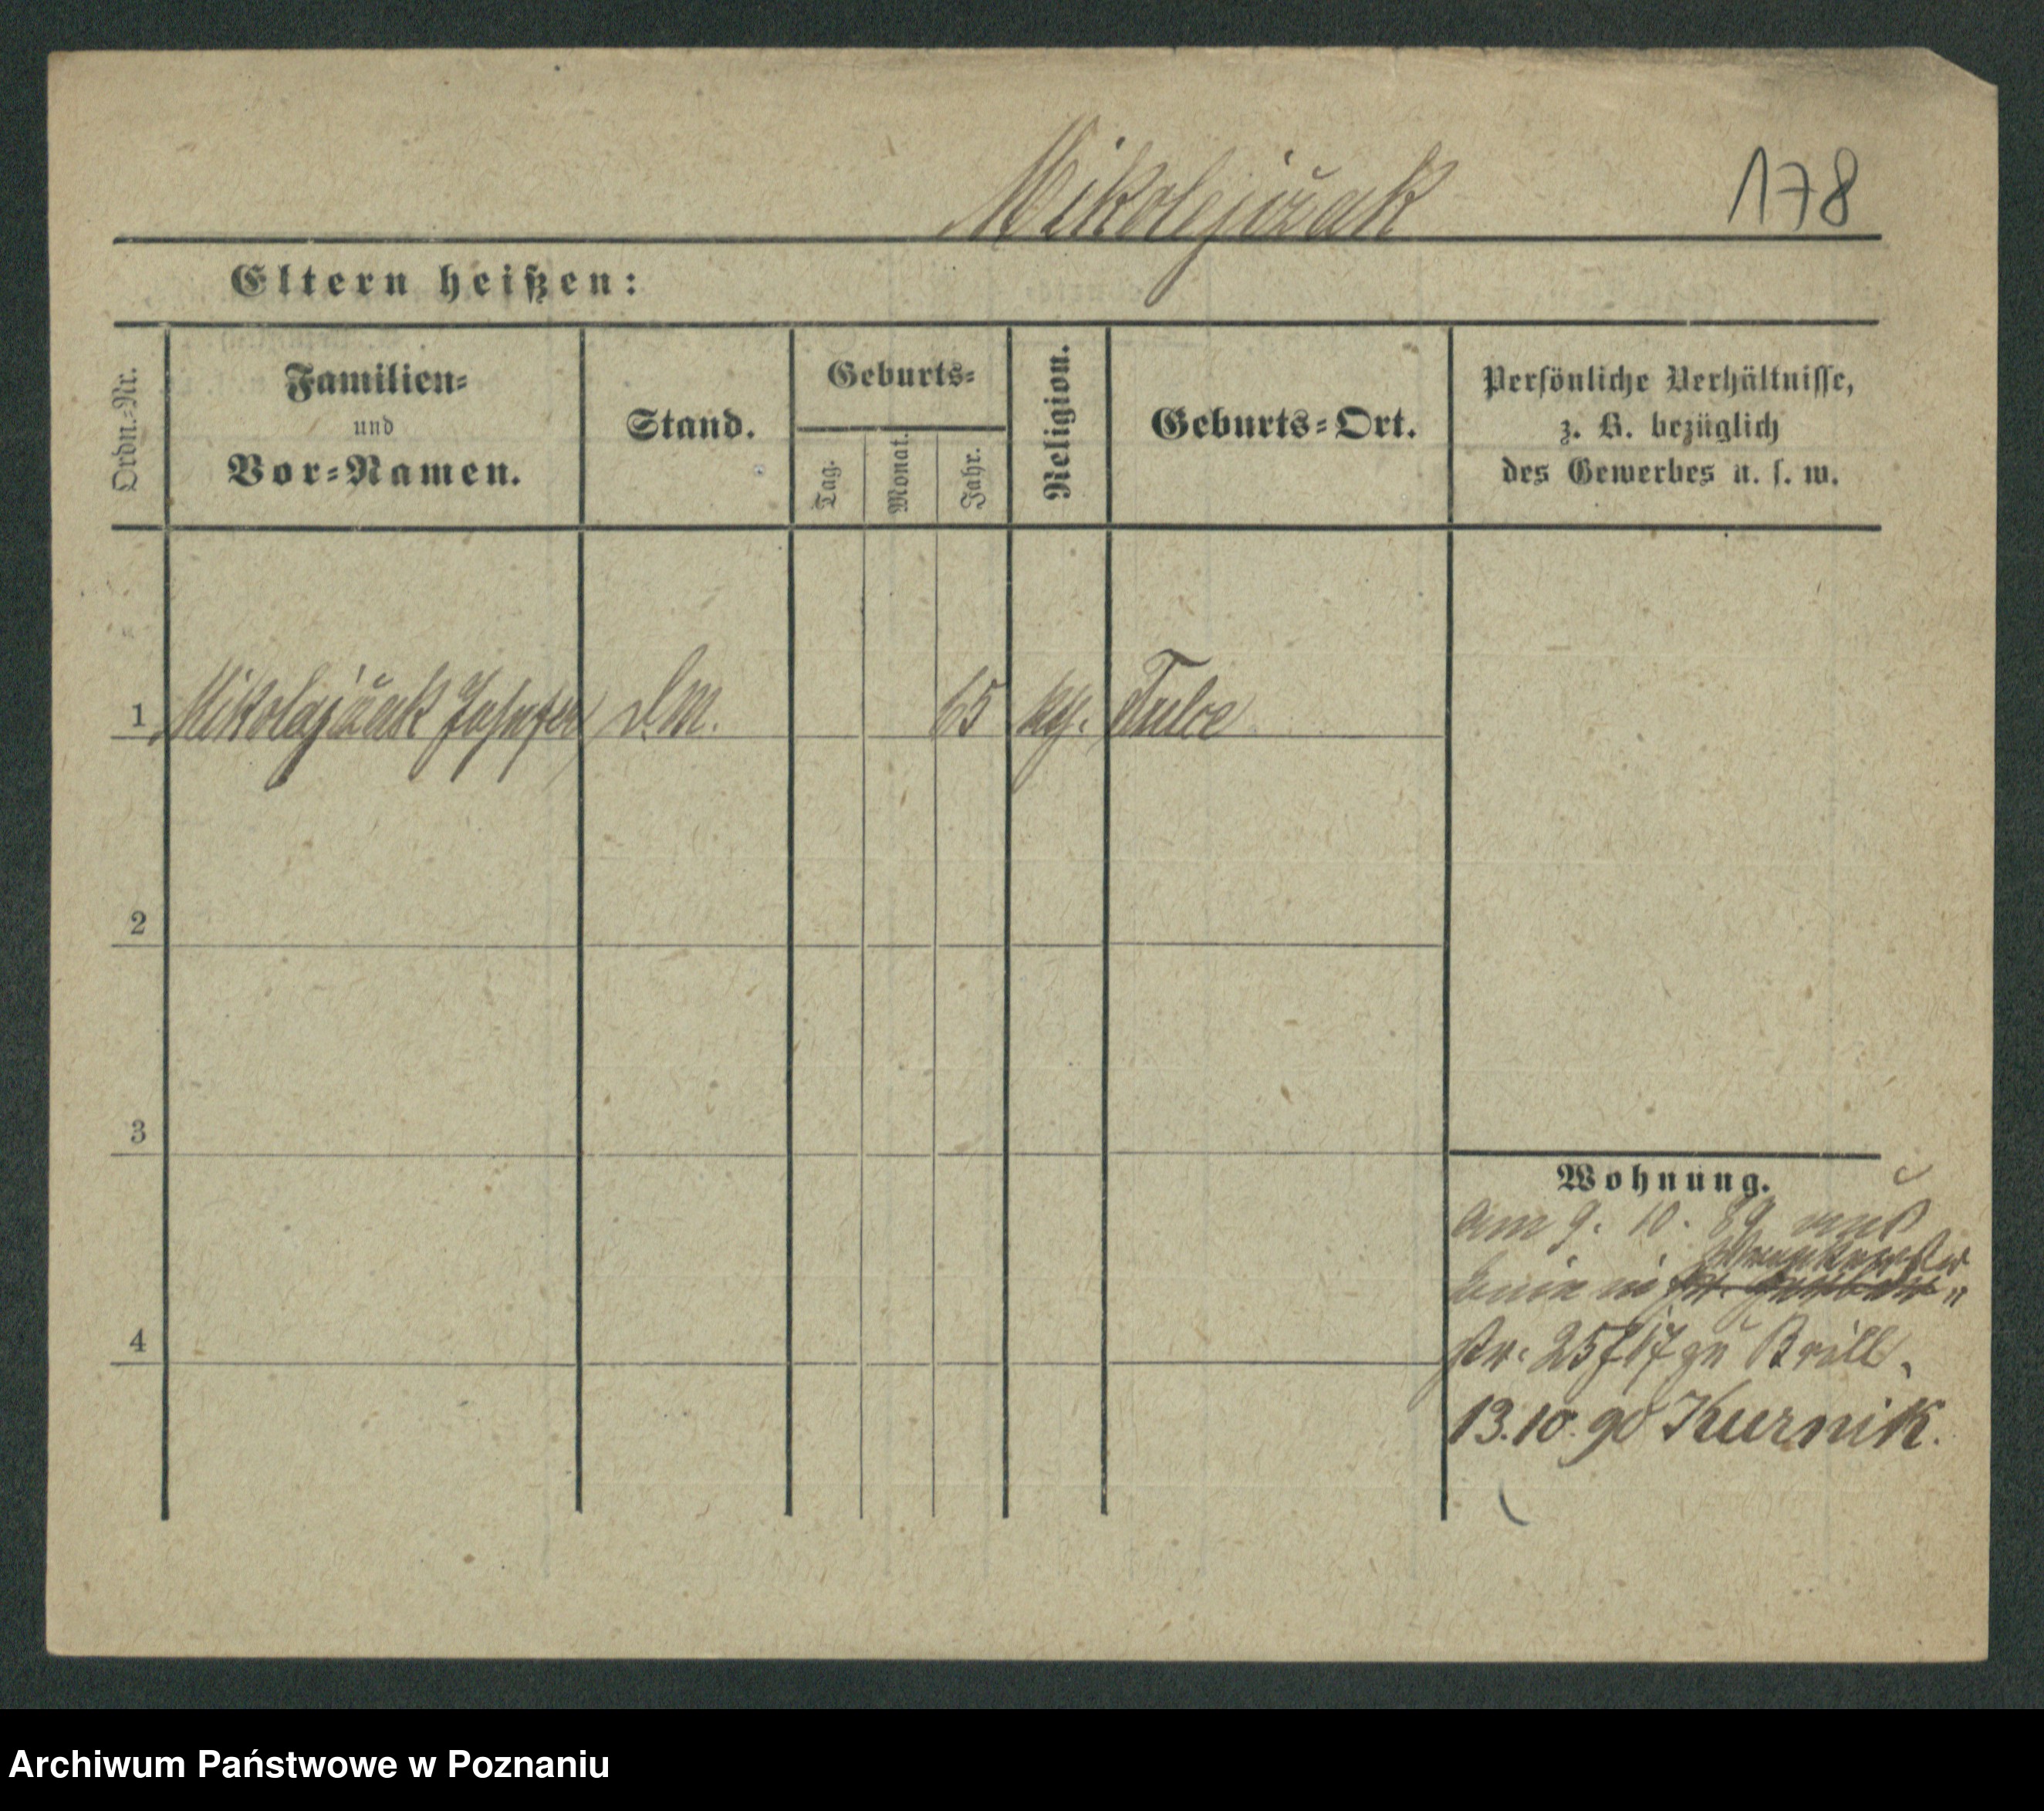 Mikolejizak 178
Eltern heißen:
Ordn.=Nr.
Familien=
und
Vor=Namen.
Stand.
Geburts=
Tag.
Monat.
Jahr.
Religion.
Geburts=Ort.
Persönliche Verhältnisse,
z. B. bezüglich
des Gewerbes u. s. w.
1 D.M. 65 Tulce
2
3
4
Wohnung.
am 9. 10. 89 aus
in
str. 25 zu Brill.
13.10.90 Kurnik.
Archiwum Państwowe w Poznaniu